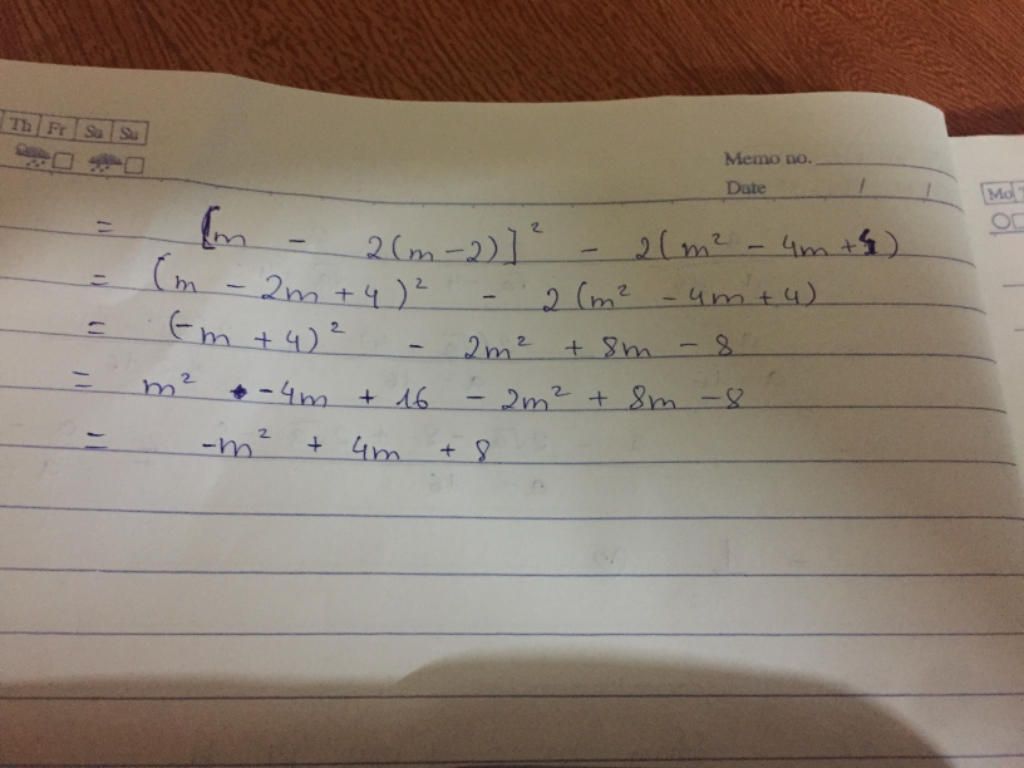 Th Fr Sa Su
Memo no.
Date / /
Mo
= [m - 2(m-2)]² - 2(m² - 4m + 4)
= (m - 2m + 4)² - 2(m² - 4m + 4)
= (-m + 4)² - 2m² + 8m - 8
= m² - 4m + 16 - 2m² + 8m - 8
= -m² + 4m + 8